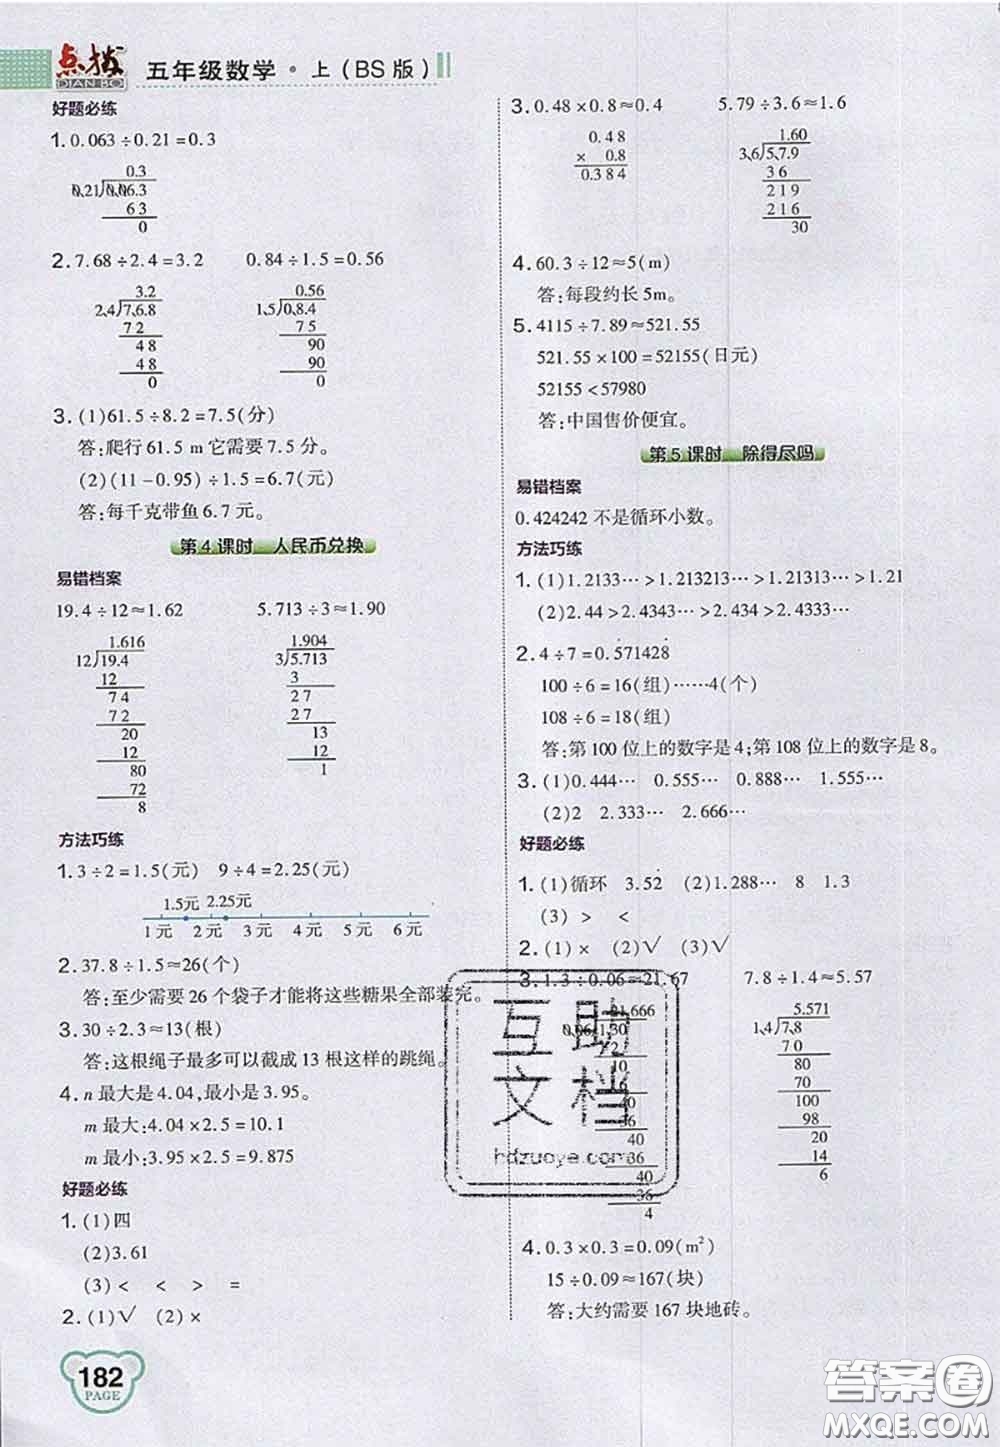 点拨 五年级数学·上(BS版)
DIAN BO
好题必练
1. 0.063÷0.21=0.3
0.3
0.21 0.06.3
6 3
0
2. 7.68÷2.4=3.2 0.84÷1.5=0.56
3.2
2.4 7.6.8
7 2
4 8
4 8
0
0.56
1.5 0.8.4
7 5
90
90
0
3. (1)61.5÷8.2=7.5(分)
答:爬行 61.5 m 它需要 7.5 分。
(2)(11-0.95)÷1.5=6.7(元)
答:每千克带鱼 6.7 元。
第 4 课时 人民币兑换
易错档案
19.4÷12≈1.62 5.713÷3≈1.90
1.616
12 19.4
12
7 4
7 2
20
12
80
72
8
1.904
3 5.713
3
2 7
2 7
13
12
1
方法巧练
1. 3÷2=1.5(元) 9÷4=2.25(元)
1.5元 2.25元
1元 2元 3元 4元 5元 6元
2. 37.8÷1.5≈26(个)
答:至少需要 26 个袋子才能将这些糖果全部装完。
3. 30÷2.3≈13(根)
答:这根绳子最多可以截成 13 根这样的跳绳。
4. n 最大是 4.04,最小是 3.95。
m 最大:4.04×2.5=10.1
m 最小:3.95×2.5=9.875
好题必练
1. (1)四
(2)3.61
(3)< < > =
2. (1)√ (2)×
182
PAGE
3. 0.48×0.8≈0.4 5.79÷3.6≈1.6
0.4 8
× 0.8
0.3 8 4
1.60
3.6 5.7.9
3 6
2 1 9
2 1 6
30
4. 60.3÷12≈5(m)
答:每段约长 5m。
5. 4115÷7.89≈521.55
521.55×100=52155(日元)
52155<57980
答:中国售价便宜。
第 5 课时 除得尽吗
易错档案
0.424242 不是循环小数。
方法巧练
1. (1)1.2133…>1.213213…>1.21313…>1.21
(2)2.44>2.4343…>2.434>2.4333…
2. 4÷7=0.5̇71428̇
100÷6=16(组)……4(个)
108÷6=18(组)
答:第 100 位上的数字是 4;第 108 位上的数字是 8。
3. (1)0.444… 0.555… 0.888… 1.333…
(2)2 2.333… 2.666…
好题必练
1. (1)循环 3.52 (2)1.288… 8 1.3
(3) > <
2. (1)× (2)√ (3)√
3. 1.3÷0.06≈21.67 7.8÷1.4≈5.57
21.666
0.06 1.30
12
10
6
40
36
40
36
40
36
4
5.571
1.4 7.8
7 0
80
70
100
98
20
14
6
4. 0.3×0.3=0.09(m²)
15÷0.09≈167(块)
答:大约需要 167 块地砖。
互助
文档
hdzuoye.com
答案圈
MXQE.COM